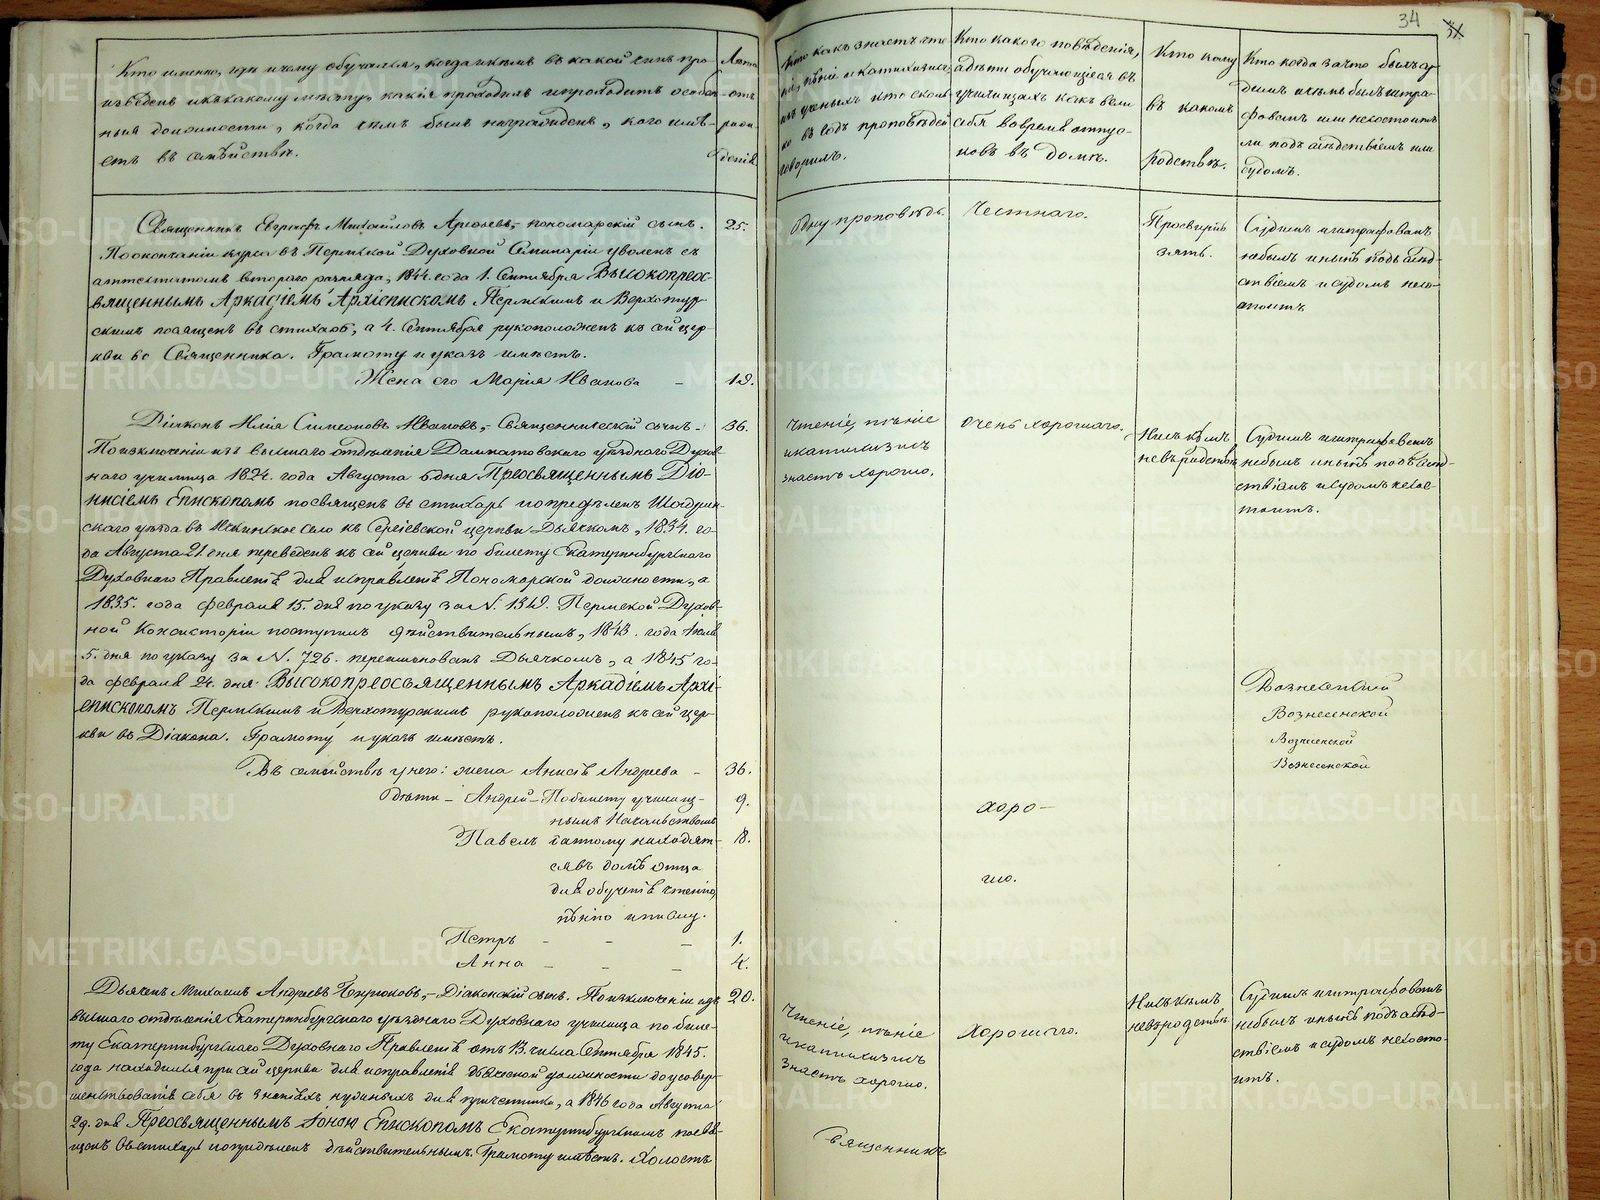 34
Кто именно, где и чему обучался, когда и кѣмъ въ какой чинъ про-
изведенъ и къ какому мѣсту, какія проходилъ и проходитъ особен-
ныя должности, когда чѣмъ былъ награжденъ, кого имѣ-
етъ въ семѣйствѣ.
Лѣта
отъ
рож-
денія
Кто какъ знаетъ чте-
ніе, пѣніе и катихизисъ,
изъ ученыхъ кто сколь-
ко въ годъ проповѣдей
говорилъ.
Кто какого поведенія,
а дѣти обучающіеся въ
училищахъ какъ вели
себя во время отпус-
ковъ въ домъ.
Кто кому
въ какомъ
родствѣ.
Кто когда за что былъ су-
димъ и чѣмъ былъ штра-
фованъ или не состоитъ
ли подъ слѣдствіемъ или
судомъ.
Священникъ Евграфъ Михайловъ Арефьевъ, пономарскій сынъ.
По окончаніи курса въ Пермской Духовной Семинаріи уволенъ съ
аттестатомъ втораго разряда, 1844. года 1. Сентября Высокопреос-
вященнымъ Аркадіемъ Архіепископомъ Пермскимъ и Верхотур-
скимъ посвященъ въ стихарь, а 4. Сентября рукоположенъ къ сей цер-
кви во Священника. Грамоту и указъ имѣетъ.
25.
Одну проповѣдь.
Честнаго.
Просвирнѣ
зять.
Судимъ и штрафованъ
не былъ и нынѣ подъ слѣд-
ствіемъ и судомъ не со-
стоитъ
Жена его Марія Иванова – 19.
Діаконъ Илія Симеоновъ Ивановъ, Священническій сынъ.
По исключеніи изъ высшаго отдѣленія Далматовскаго уѣзднаго Духов-
наго училища 1824. года Августа 6 дня Преосвященнымъ Діо-
нисіемъ Епископомъ посвященъ въ стихарь и опредѣленъ Шадрин-
скаго уѣзда въ село къ церкви Дьячкомъ, 1834. го-
да Августа 21. дня переведенъ къ сей церкви по билету Екатеринбургскаго
Духовнаго Правленія для исправленія Пономарской должности, а
1835. года февраля 15. дня по указу за N. 1349. Пермской Духов-
ной Консисторіи поступилъ дѣйствительнымъ, 1843. года
5. дня по указу за N. 726. переименованъ Дьячкомъ, а 1845 го-
да февраля 24. дня Высокопреосвященнымъ Аркадіемъ Архі-
епископомъ Пермскимъ и Верхотурскимъ рукоположенъ къ сей цер-
кви въ Діакона. Грамоту и указъ имѣетъ.
36.
Чтеніе, пѣніе
и катихизисъ
знаетъ хорошо.
Очень хорошаго.
Ни съ кѣмъ
не въ родствѣ
Судимъ и штрафованъ
не былъ и нынѣ подъ слѣд-
ствіемъ и судомъ не сос-
тоитъ.
Вознесенской
Вознесенской
Вознесенской
Въ семействѣ у него: жена Анисія Андреева – 36.
Дѣти – Андрей – По билету училищ- 9.
нымъ Начальствомъ
Павелъ данному находят- 8.
ся въ домѣ отца
для обученія чтенію,
пѣнію и письму.
Петръ – – – 1.
Анна – – – 4.
хоро-
шо.
Дьячекъ Михаилъ Андреевъ Бирюковъ, Діаконскій сынъ. По исключеніи изъ
высшаго отдѣленія Екатеринбургскаго уѣзднаго Духовнаго училища по биле-
ту Екатеринбургскаго Духовнаго Правленія отъ 13. числа Сентября 1845.
года находился при сей церкви для исправленія дьяческой должности до усовер-
шенствованія себя въ знаніяхъ нужныхъ для причетника, а 1846 года Августа
29. дня Преосвященнымъ Іоною Епископомъ Екатеринбургскимъ посвя-
щенъ въ стихарь и опредѣленъ дѣйствительнымъ. Грамоту имѣетъ. Холостъ
20.
Чтеніе, пѣніе
и катихизисъ
знаетъ хорошо.
Хорошаго.
Ни съ кѣмъ
не въ родствѣ.
Судимъ и штрафованъ
не былъ и нынѣ подъ слѣд-
ствіемъ и судомъ не состо-
итъ.
Священникъ
METRIKI.GASO-URAL.RU